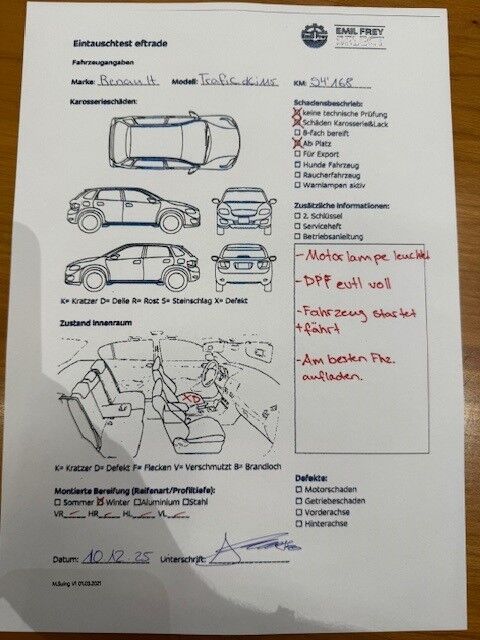 EMIL FREY
SELECT
Eintauschtest eftrade
Fahrzeugangaben
Marke: Renault Modell: Trafic dCi 115 KM: 94'168
Karosserieschäden:
K= Kratzer D= Delle R= Rost S= Steinschlag X= Defekt
Zustand Innenraum
XD
K= Kratzer D= Defekt F= Flecken V= Verschmutzt B= Brandloch
Montierte Bereifung (Reifenart/Profiltiefe):
Sommer Winter Aluminium Stahl
VR HR HL VL
Datum: 10.12.25 Unterschrift:
M.Suing V1 01.03.2021
Schadensbeschrieb:
keine technische Prüfung
Schäden Karosserie&Lack
B-fach bereift
Ab Platz
Für Export
Hunde Fahrzeug
Raucherfahrzeug
Warnlampen aktiv
Zusätzliche Informationen:
2. Schlüssel
Serviceheft
Betriebsanleitung
- Motorlampe leuchtet
- DPF evtl voll
- Fahrzeug startet
+ fährt
- Am besten Fhz.
aufladen.
Defekte:
Motorschaden
Getriebeschaden
Vorderachse
Hinterachse